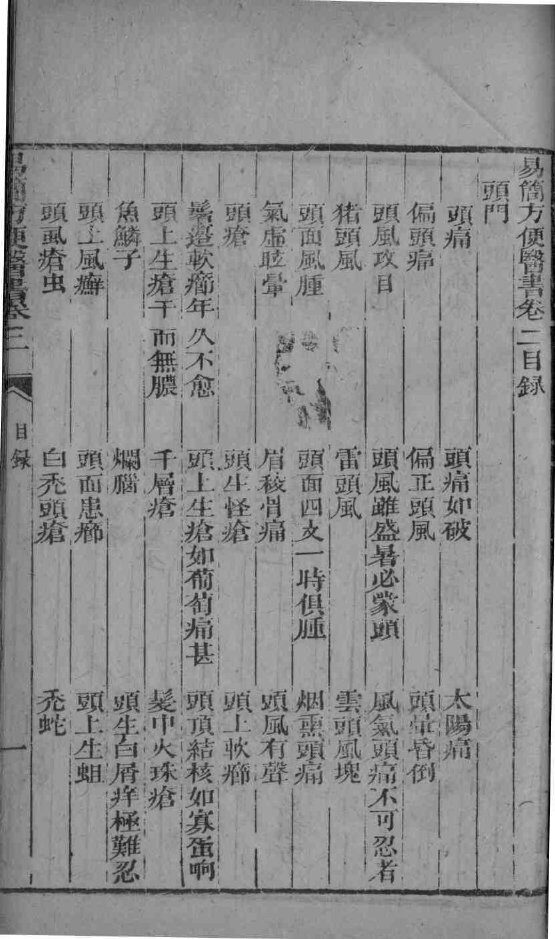 易簡方便醫書卷二目録
頭門
頭痛 頭痛如破 太陽痛
偏頭痛 偏正頭風 頭暈昏倒
頭風攻目 頭風雖盛暑必蒙頭 風氣頭痛不可忍者
猪頭風 雷頭風 雲頭風塊
頭面風腫 頭面四支一時俱腫 烟熏頭痛
氣虛眩暈 眉稜骨痛 頭風有聲
頭瘡 頭生怪瘡 頭上軟癤
鬢邉軟癤年久不愈 頭上生瘡如葡萄痛甚 頭頂結核如寡蛋响
頭上生瘡干而無膿 千層瘡 髪中火珠瘡
魚鱗子 爛腦 頭生白屑痒極難忍
頭上風癬 頭面患癤 頭上生蛆
頭虱瘡虫 白禿頭瘡 禿蛇
易簡方便醫書卷二 目録 一